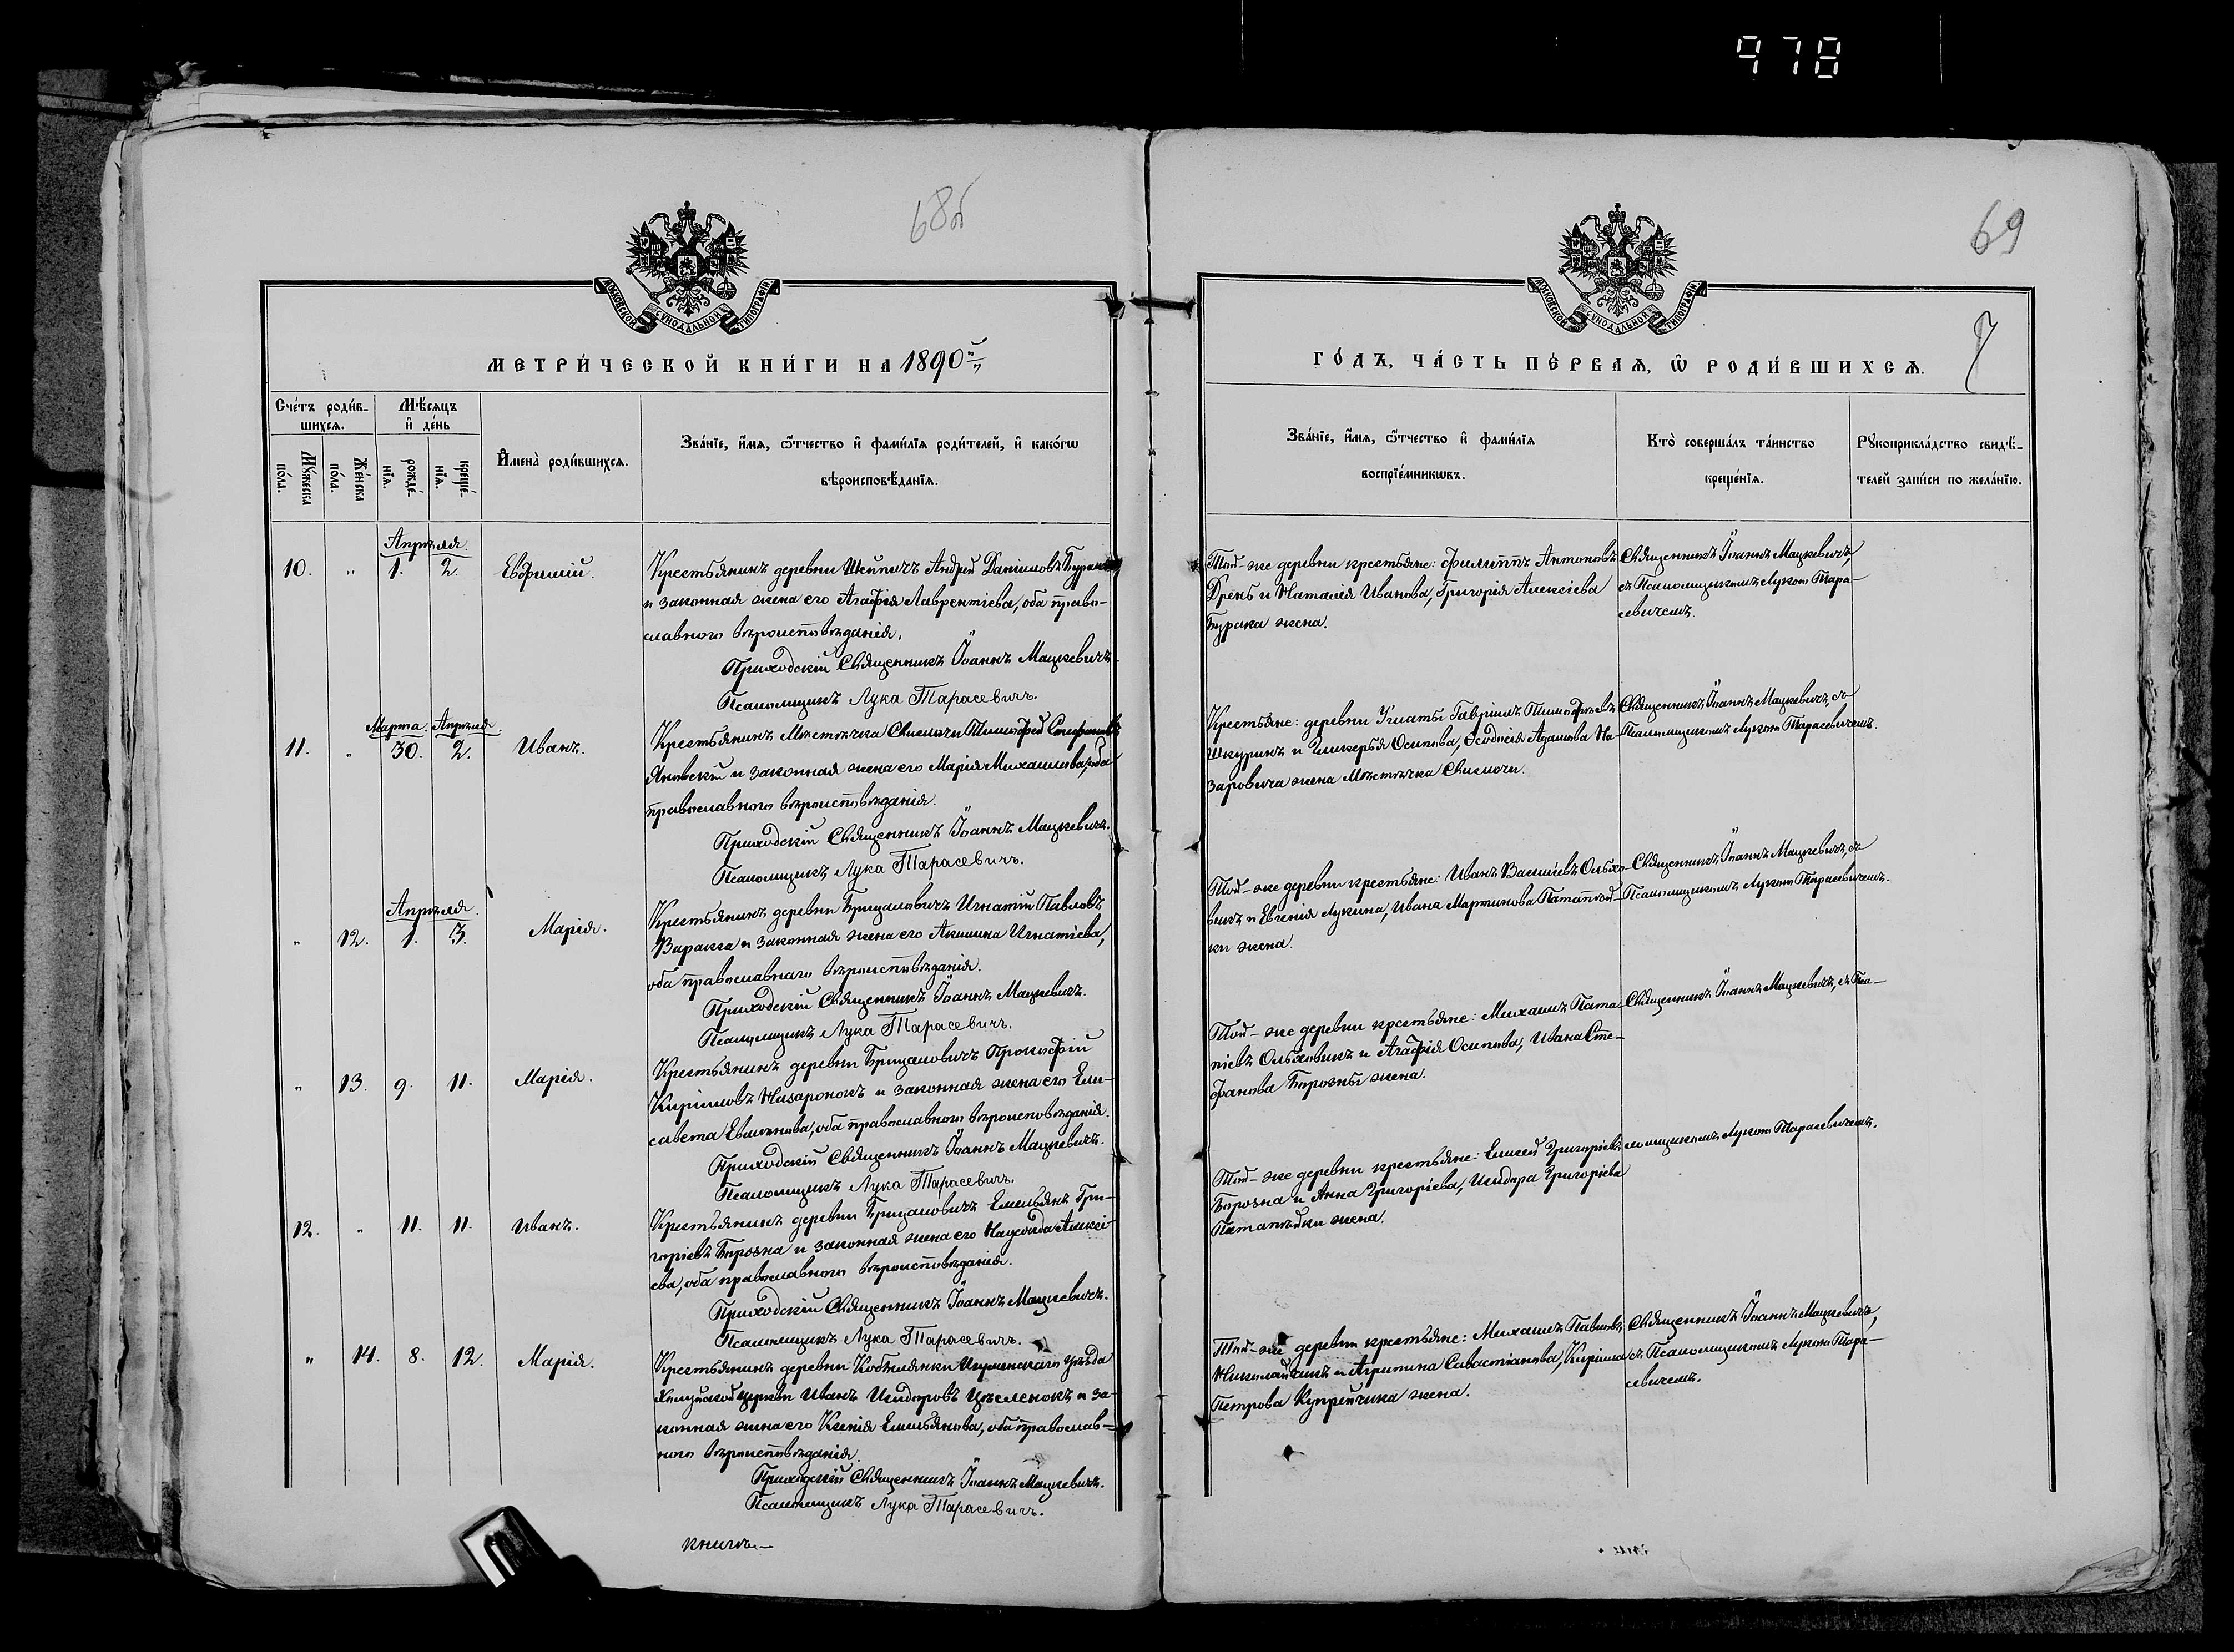 978
68об
69
7
МОСКОВСКОЙ СѴНОДАЛЬНОЙ ТИПОГРАФІИ
МОСКОВСКОЙ СѴНОДАЛЬНОЙ ТИПОГРАФІИ
МЕТРИ́ЧЕСКОЙ КНИ́ГИ НА 1890й
ГО́ДЪ, ЧА́СТЬ ПЕ́РВАѦ, Ѽ РОДИ́ВШИХСѦ.
Сче́тъ роди́в-
шихсѧ.
Мѣ́сѧцъ
и҆ де́нь
Мꙋ́жеска
по́ла.
Же́нска
по́ла.
рожде́-
нїѧ.
креще́-
нїѧ.
И҆мена̀ роди́вшихсѧ.
Зва́нїе, и҆́мѧ, ѻ҆́тчество и҆ фами́лїѧ роди́телей, и҆ како́гѡ
вѣроисповѣ́данїѧ.
Зва́нїе, и҆́мѧ, ѻ҆́тчество и҆ фами́лїѧ
воспрїе́мникѡвъ.
Кто̀ соверша́лъ та́инство
креще́нїѧ.
Рꙋкоприкла́дство свидѣ́-
телей за́писи по жела́нїю.
Апрѣля.
10. " 1. 2. Евфимій.
Крестьянинъ деревни Шейпичъ Андрей Даниловъ
и законная жена его Агафія Лаврентіева, оба право-
славнаго вѣроисповѣданія.
Приходскій Священникъ Іоаннъ Мацкевичъ.
Псаломщикъ Лука Тарасевичъ.
Той-же деревни крестьяне: Филиппъ Антоновъ
Дрень и Наталія Иванова, Григорія Алексіева
Бурака жена.
Священникъ Іоаннъ Мацкевичъ,
съ Псаломщикомъ Лукою Тара-
севичемъ.
Марта. Апрѣля.
11. " 30. 2. Иванъ.
Крестьянинъ Мѣстечка Свислочи Тимофей Стефановъ
Яновскій и законная жена его Марія Михайлова, оба
православнаго вѣроисповѣданія.
Приходскій Священникъ Іоаннъ Мацкевичъ.
Псаломщикъ Лука Тарасевичъ.
Крестьяне: деревни Гавріилъ Тимофѣевъ
Шкуринъ и Гликерья Осипова, Ѳеодосія Адамова На-
заровича жена Мѣстечка Свислочи.
Священникъ Іоаннъ Мацкевичъ, съ
Псаломщикомъ Лукою Тарасевичемъ.
Апрѣля.
" 12. 1. 3. Марія.
Крестьянинъ деревни Брицаловичъ Игнатій Павловъ
Варакса и законная жена его Акилина Игнатіева,
оба православнаго вѣроисповѣданія.
Приходскій Священникъ Іоаннъ Мацкевичъ.
Псаломщикъ Лука Тарасевичъ.
Той-же деревни крестьяне: Иванъ Василіевъ Ольхо-
викъ и Евгенія Лукина, Ивана Мартинова Патапѣй-
ки жена.
Священникъ Іоаннъ Мацкевичъ, съ
Псаломщикомъ Лукою Тарасевичемъ.
" 13. 9. 11. Марія.
Крестьянинъ деревни Брицаловичъ Прокофій
Кирилловъ Назаронокъ и законная жена его Ели-
савета, оба православнаго вѣроисповѣданія.
Приходскій Священникъ Іоаннъ Мацкевичъ.
Псаломщикъ Лука Тарасевичъ.
Той-же деревни крестьяне: Михаилъ Пата-
піевъ Ольховикъ и Агафія Осипова, Ивана Сте-
фанова Борозны жена.
Священникъ Іоаннъ Мацкевичъ, съ Пса-
12. " 11. 11. Иванъ.
Крестьянинъ деревни Брицаловичъ Емельянъ Гри-
горіевъ Борозна и законная жена его Алексі-
ева, оба православнаго вѣроисповѣданія.
Приходскій Священникъ Іоаннъ Мацкевичъ.
Псаломщикъ Лука Тарасевичъ.
Той-же деревни крестьяне: Елисей Григоріевъ
Борозна и Анна Григоріева, Исидора Григоріева
Патапѣйки жена.
ломщикомъ Лукою Тарасевичемъ.
" 14. 8. 12. Марія.
Крестьянинъ деревни Кобылянки Игуменскаго уѣзда
церкви Иванъ Исидоровъ Цѣсленокъ и за-
конная жена его Ксенія Емельянова, оба православ-
наго вѣроисповѣданія.
Приходскій Священникъ Іоаннъ Мацкевичъ.
Псаломщикъ Лука Тарасевичъ.
Той-же деревни крестьяне: Михаилъ Павловъ
Николайчикъ и Агрипина Савастіанова, Кирилла
Петрова Купрейчика жена.
Священникъ Іоаннъ Мацкевичъ,
съ Псаломщикомъ Лукою Тара-
севичемъ.